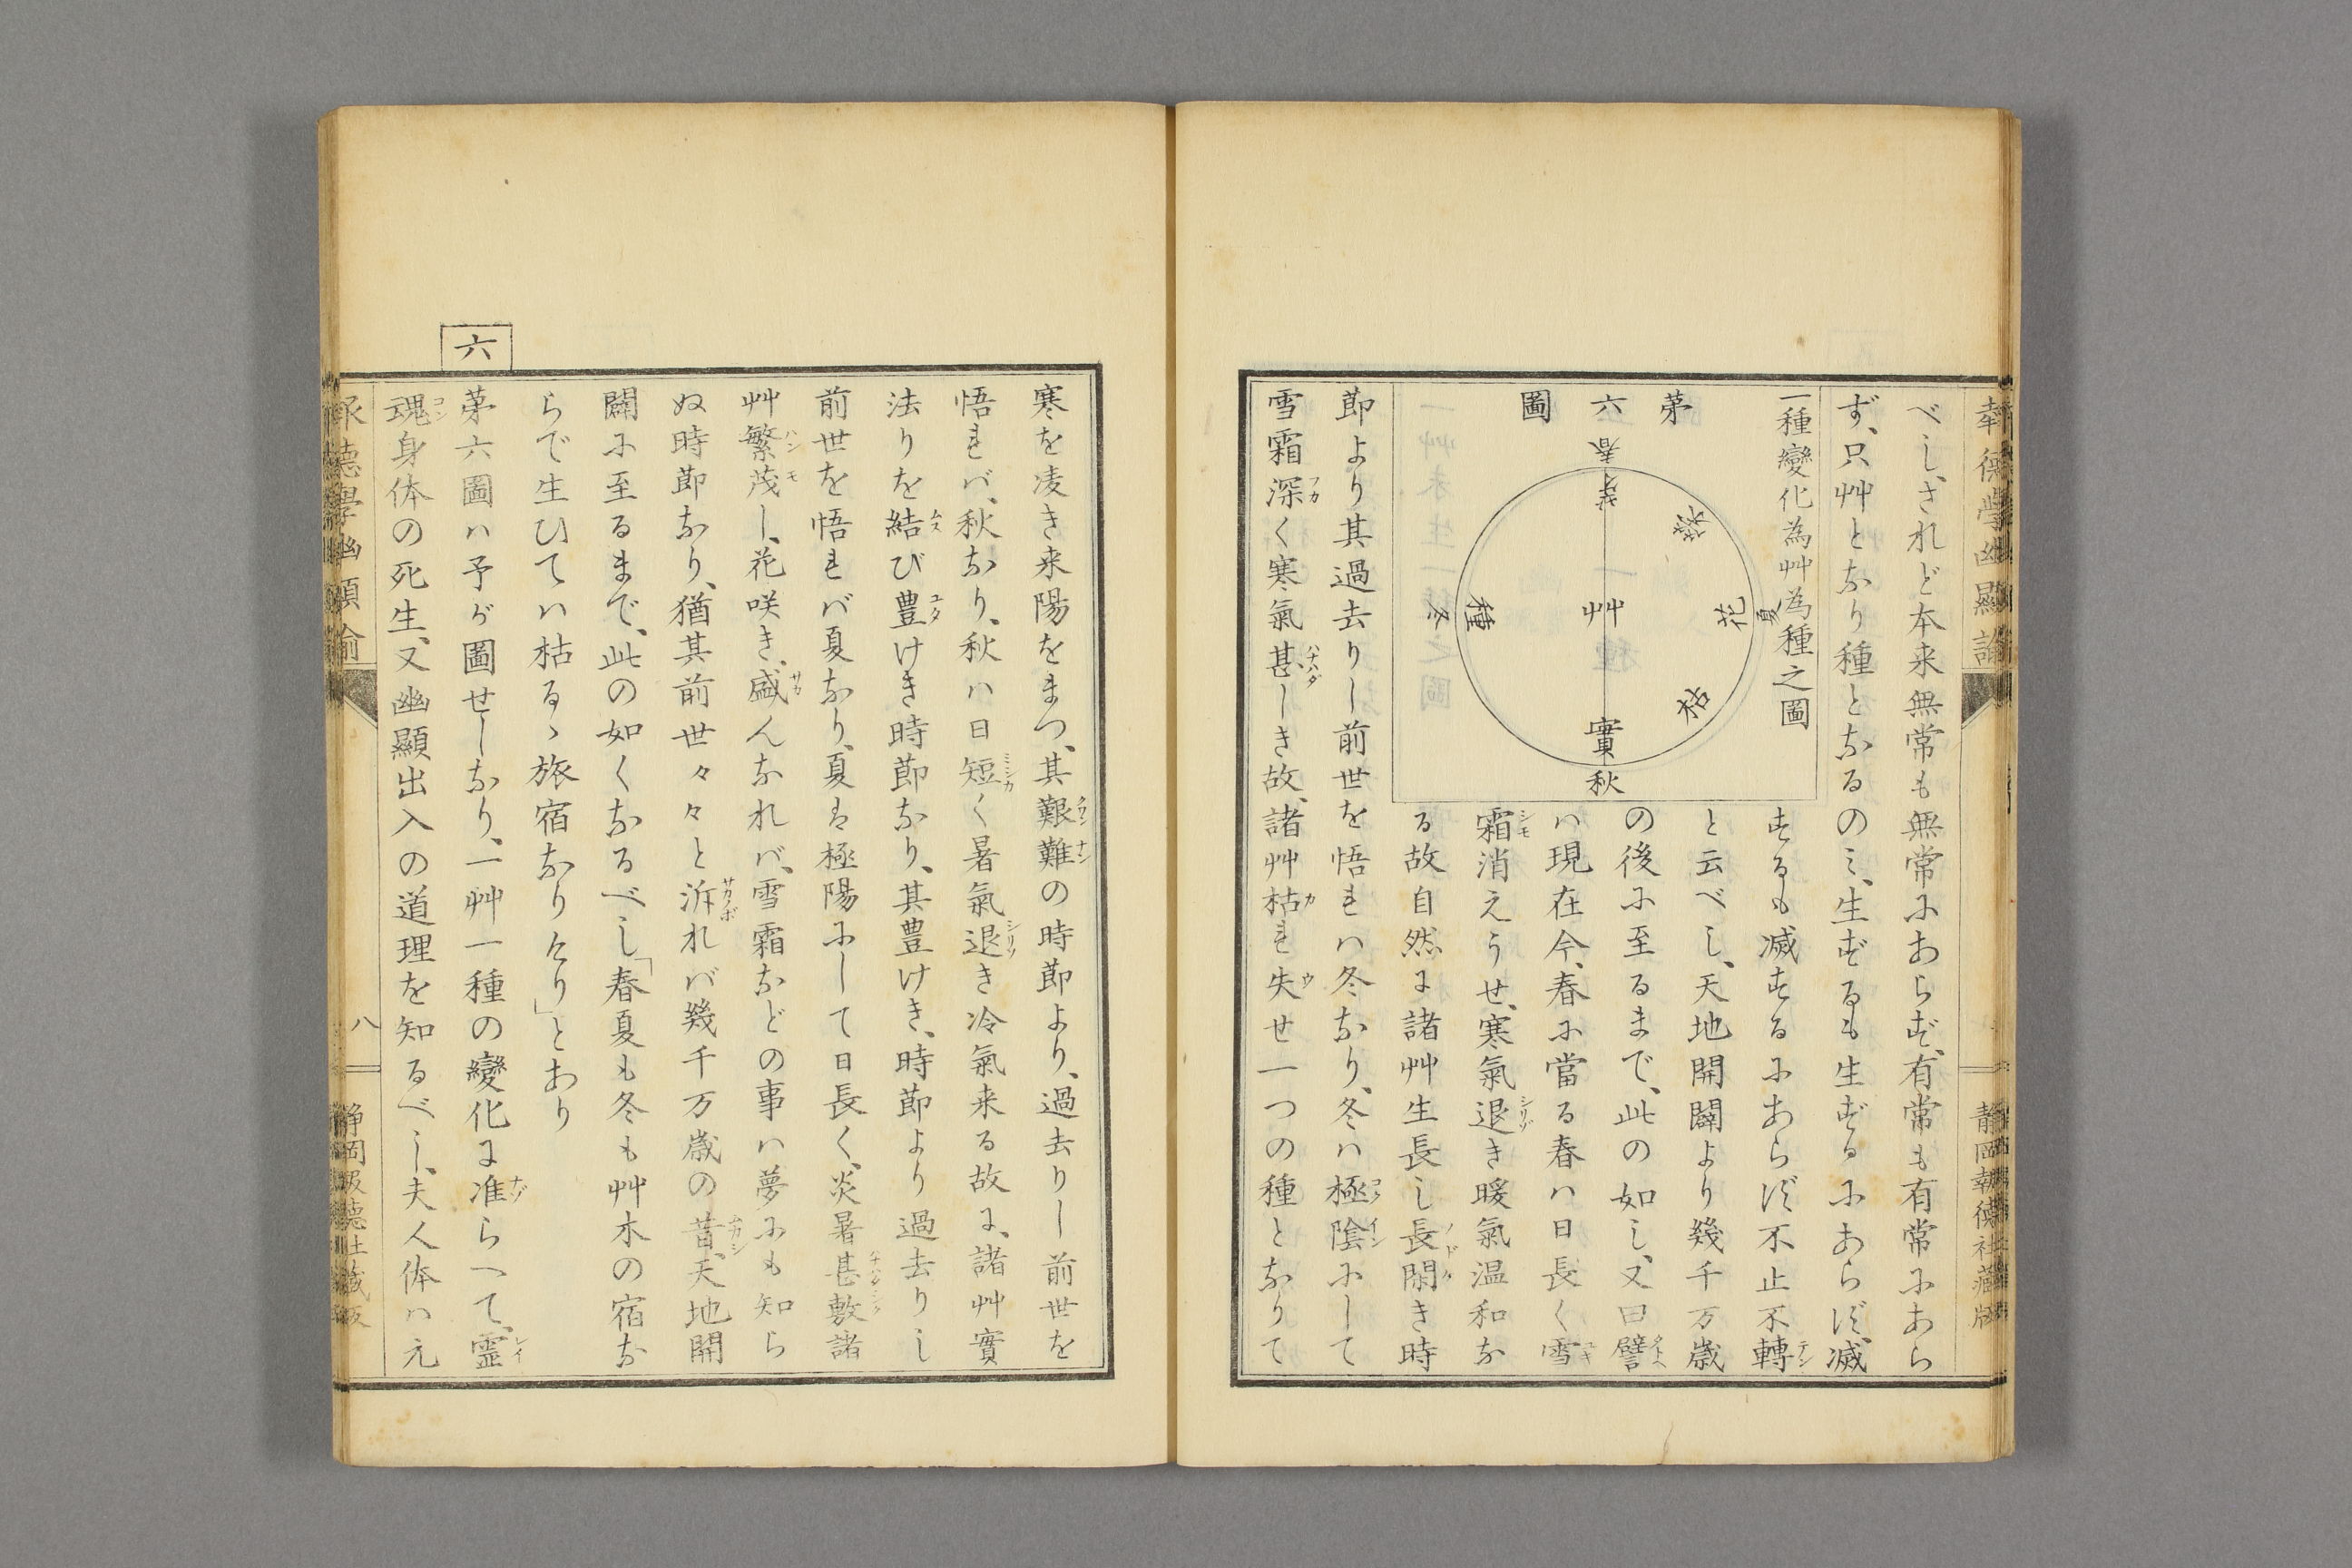 報徳學幽顯諭
静岡報徳社藏版
べし、されど本来無常も無常にあらず、有常も有常にあら
ず、只艸となり種となるのミ、生ずるも生ずるにあらず、滅
一種變化為艸為種之圖
第六圖
春
芽
繁
夏
花
枯
秋
實
冬
種
艸
するも滅するにあらず、不止不轉テン
と云べし、天地開闢より幾千万歳
の後に至るまで、此の如し、又曰譬タトヘ
ハ現在今、春に當る春ハ日長く雪ユキ
霜シモ消えうせ、寒氣退シリゾき暖氣温和な
る故自然に諸艸生長し長閑ノドケき時
節より其過去りし前世を悟れハ冬なり、冬ハ極陰ゴクインにして
雪霜深フカく寒氣甚ハナハダしき故、諸艸枯カれ失ウせ一つの種となりて
寒を凌き来陽をまつ、其艱難カンナンの時節より、過去りし前世を
悟れバ、秋なり、秋ハ日短ミシカく暑氣退シリソき冷氣来る故に、諸艸實
法りを結ムスび豊ユタけき時節なり、其豊けき、時節より過去りし
前世を悟れバ夏なり、夏は極陽にして日長く、炎暑甚敷ハナハダシク諸
艸繁茂ハンモし、花咲き、盛サカんなれバ、雪霜などの事ハ夢にも知ら
ぬ時節なり、猶其前世々々と泝サカノボれバ幾千万歳の昔ムカシ、天地開
闢に至るまで、此の如くなるべし「春夏も冬も艸木の宿な
らで生ひてハ枯るゝ旅宿なりけり」とあり
六
第六圖ハ予が圖せしなり、一艸一種の變化に准ナゾらへて、霊レイ
魂コン身体の死生、又幽顯出入の道理を知るべし、夫人体ハ元
報徳學幽顯諭
八
静岡報徳社藏版